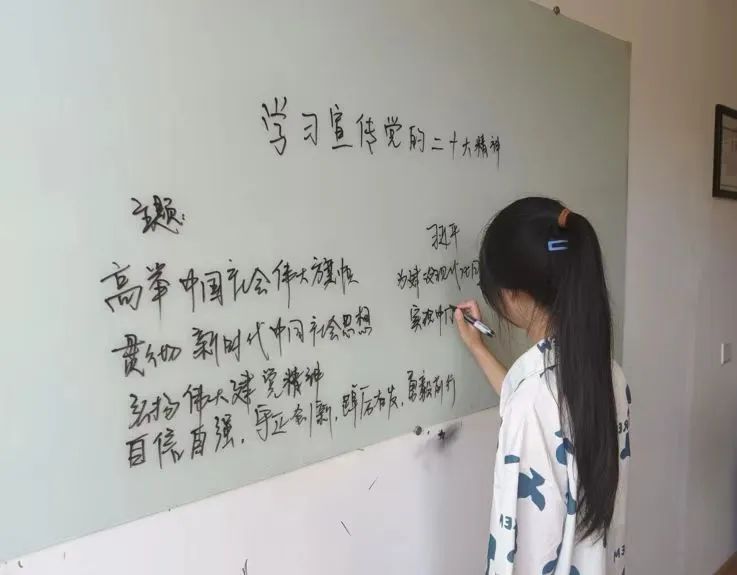 学习宣传党的二十大精神
主题:
高举中国社会伟大旗帜
贯彻新时代中国社会思想
弘扬伟大建党精神
自信自强，守正创新，踔厉奋发，勇毅前行
习近平
为建设现代化国
实现中